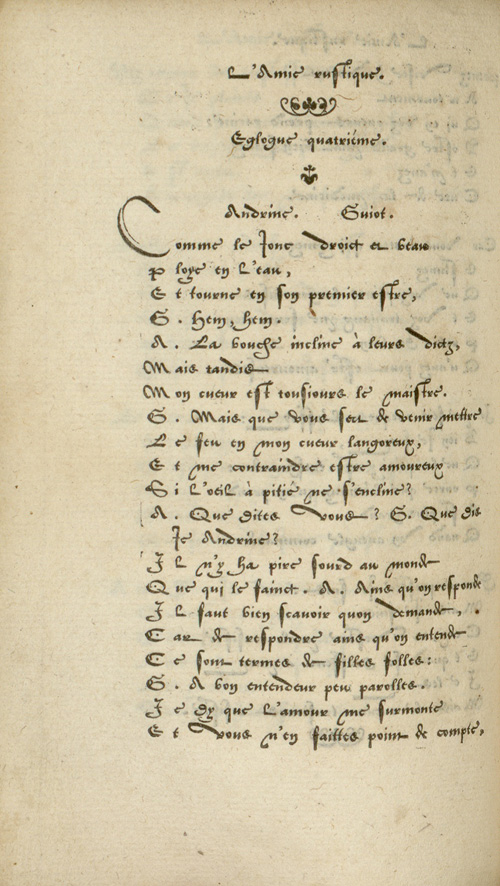 L'Amie rustique.
Eglogue quatriéme.
Andrine. Guiot.
Comme le Jonc droict et beau
Ploye en l'eau,
Et tourne en son premier estre,
G. Hem, hem.
A. La bouche incline à leurs dictz,
Mais tandis
Mon cueur est tousiours le maistre.
G. Mais que vous sert de venir mettre
Le feu en mon cueur langoreux,
Et me contraindre estre amoureux
Si l'oeil à pitié ne s'encline?
A. Que dites vous? G. Que dis
Je Andrine?
Il n'y ha pire sourd au monde
Que qui le fainct. A. Ains qu'on responde
Il faut bien scavoir quon demande,
Car de respondre ains qu'on entende
Ce sont termes de filles folles:
G. A bon entendeur peu parolles.
Je dy que l'amour me surmonte
Et vous n'en faittes point de compte,